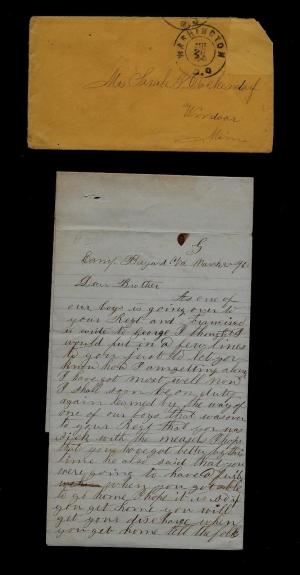 WASHINGTON
D.C
Mrs Sarah
Windsor
G
Camp Bayard Va March
Dear Brother
As one of
our boys is going over to
your Regt and Francisco
is write to George I thought I
would put in a few lines
to you first to let you
know how I am getting along
I have got most well now
I shall soon be on duty
again learned by the way of
one of our boys that was over
to your Regt that you was
sick with the measels I hope
that you have got better by this
time he also said that you
were going to have a
when you got
to go home I hope it is so if
you get home you will
get your discharge when
you get home tell the folks